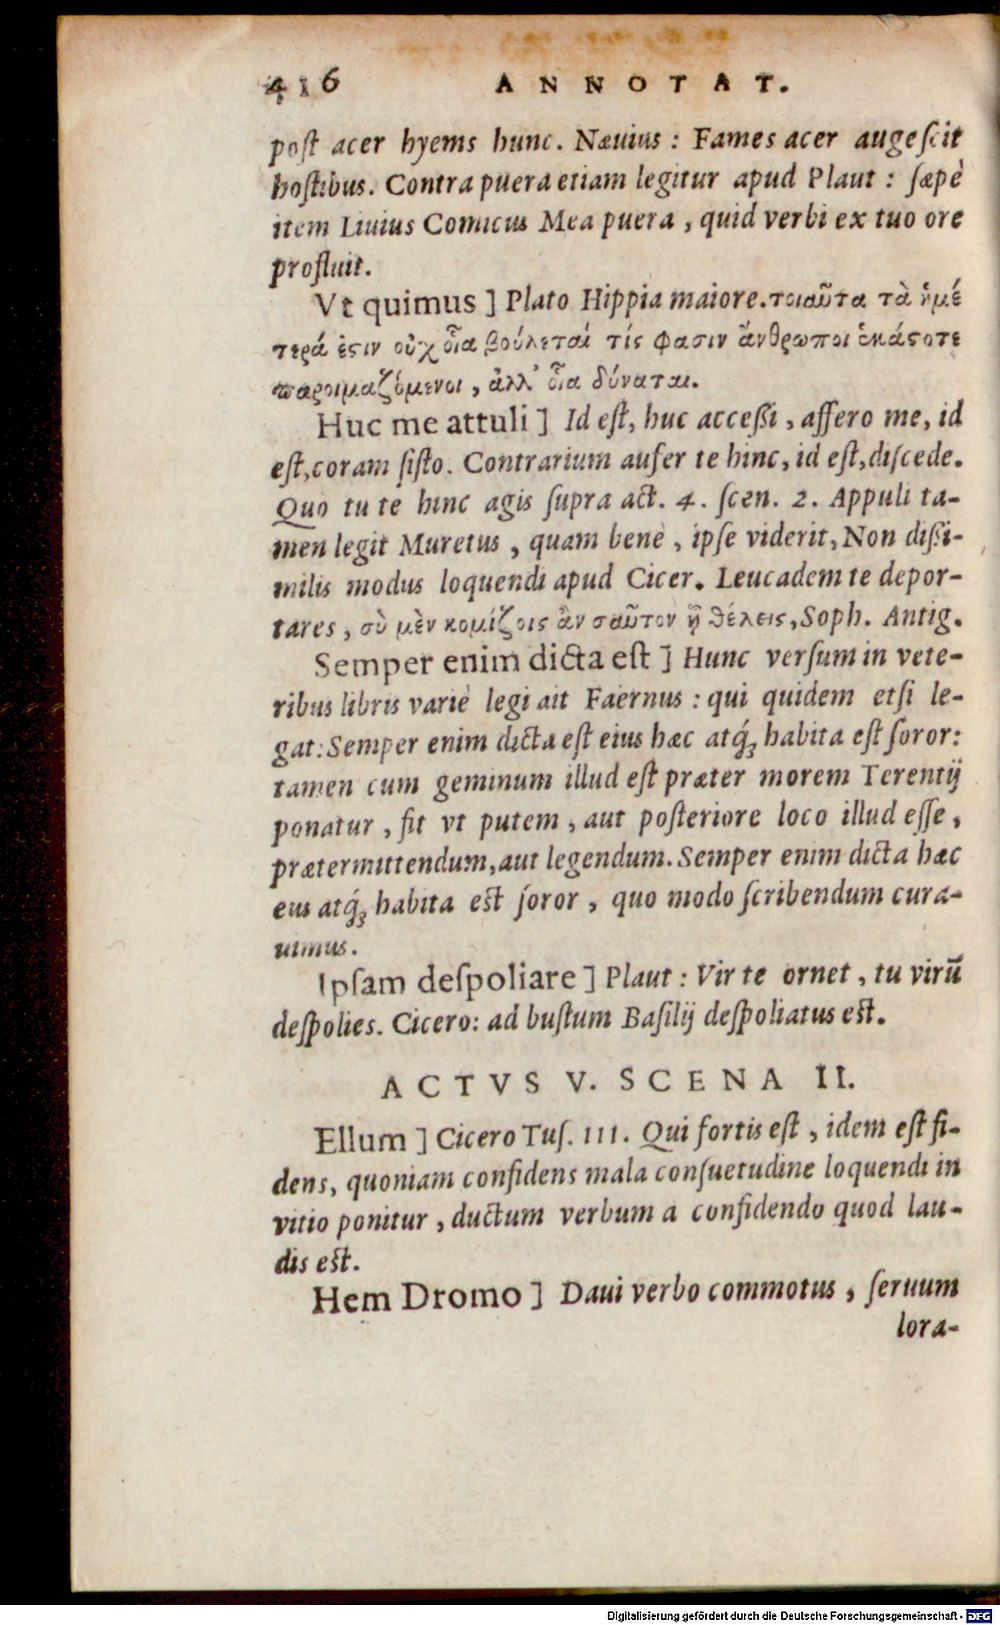 416 ANNOTAT.
poſt acer hyems hunc. Næuius : Fames acer augeſcit
hoſtibus. Contra puera etiam legitur apud Plaut : ſæpè
item Liuius Comicus Mea puera , quid verbi ex tuo ore
profluit.
Vt quimus ] Plato Hippia maiore. τοιαῦτα τὰ ἡμέ
τερά ἐςιν οὐχ οἷα βούλεταί τίς φασιν ἄνθρωποι ἑκάςοτε
παροιμαζόμενοι , ἀλλ' οἷα δύναται.
Huc me attuli ] Id eſt, huc acceßi , affero me, id
eſt,coram ſiſto. Contrarium aufer te hinc, id eſt,diſcede.
Quo tu te hinc agis ſupra act. 4. ſcen. 2. Appuli ta-
men legit Muretus , quam benè , ipſe viderit, Non dißi-
milis modus loquendi apud Cicer. Leucadem te depor-
tares , σὺ μὲν κομίζοις ἂν σαῦτον ᾗ θέλεις, Soph. Antig.
Semper enim dicta eſt ] Hunc verſum in vete-
ribus libris variè legi ait Faernus : qui quidem etſi le-
gat: Semper enim dicta eſt eius hæc atq́; habita eſt ſoror:
tamen cum geminum illud eſt præter morem Terentij
ponatur , fit vt putem , aut poſteriore loco illud eſſe ,
prætermittendum, aut legendum. Semper enim dicta hæc
eius atq́; habita eſt ſoror , quo modo ſcribendum cura-
uimus.
Ipſam deſpoliare ] Plaut : Vir te ornet , tu virū
deſpolies. Cicero: ad buſtum Baſilij deſpoliatus eſt.
ACTVS V. SCENA II.
Ellum ] Cicero Tuſ. III. Qui fortis eſt , idem eſt fi-
dens, quoniam confidens mala conſuetudine loquendi in
vitio ponitur , ductum verbum a confidendo quod lau-
dis eſt.
Hem Dromo ] Daui verbo commotus , ſeruum
lora-
Digitalisierung gefördert durch die Deutsche Forschungsgemeinschaft - DFG